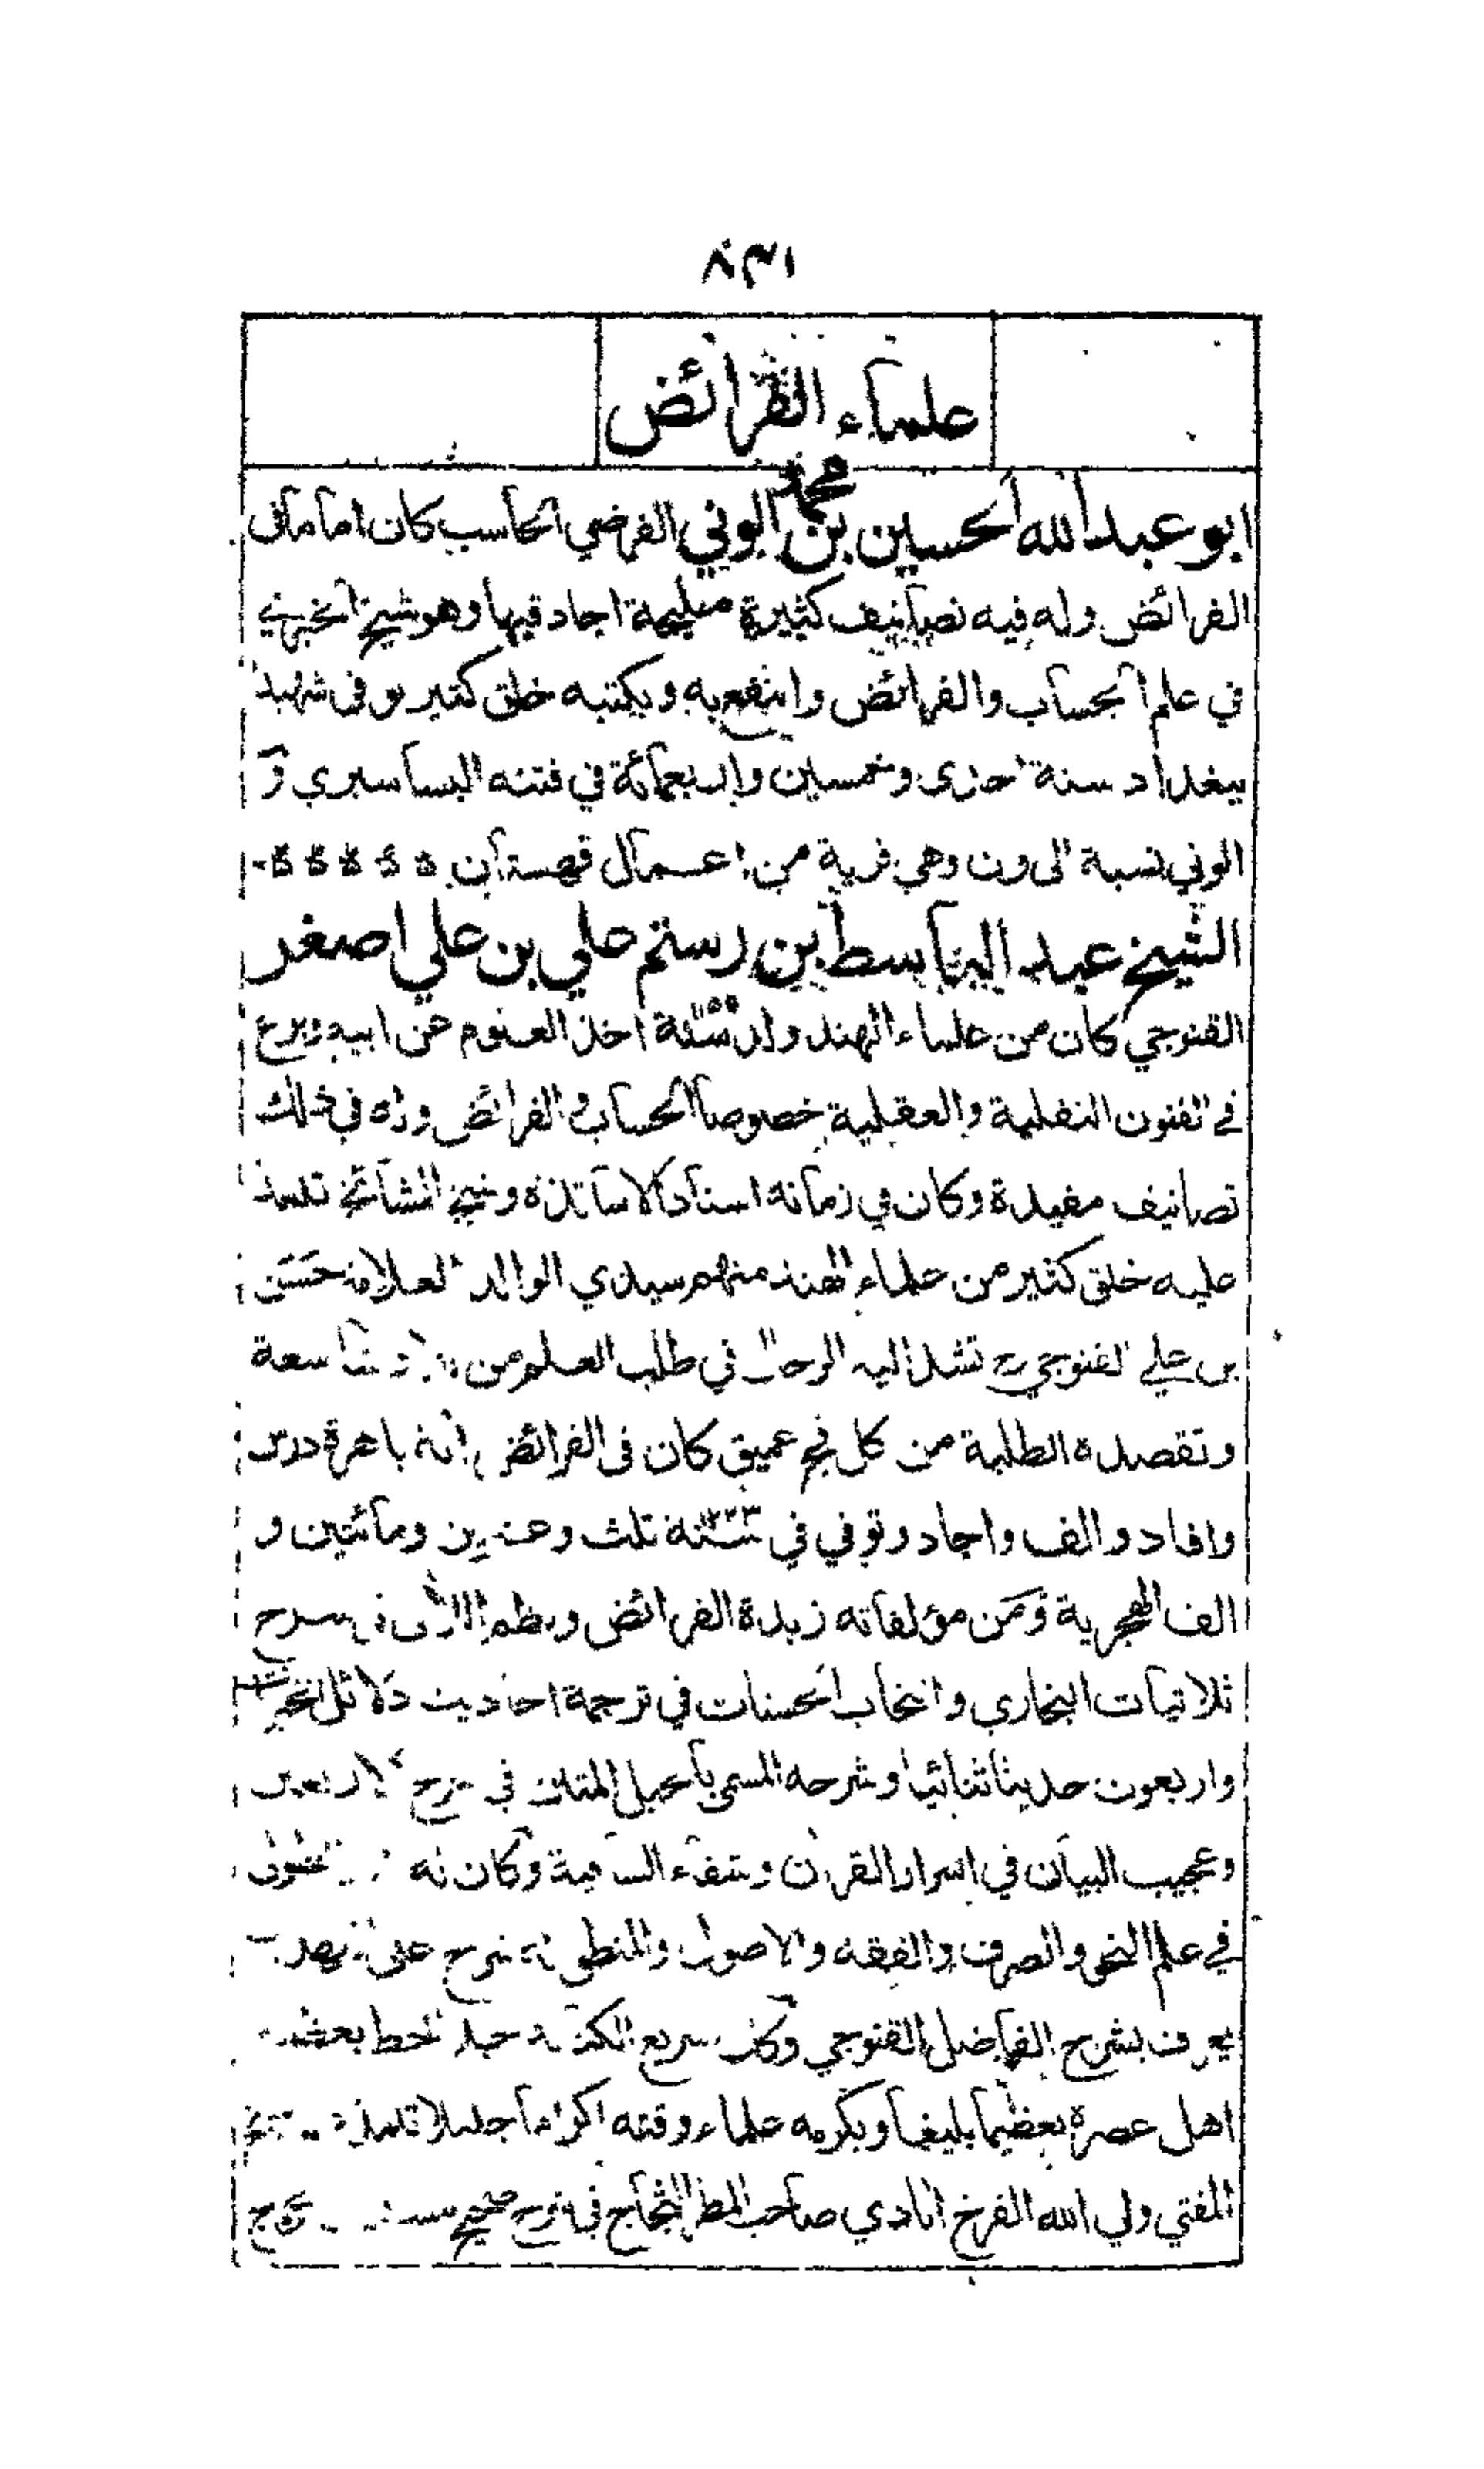 ٨٣١
علماء الفرائض
ابو عبد الله الحسين بن محمد الوني الفرضي الحاسب كان اماما في
الفرائض وله فيه تصانيف كثيرة مليحة اجاد فيها وهو شيخ الخبري
في علم الحساب والفرائض وانتفع به وبكتبه خلق كثير توفى شهيدا
ببغداد سنة احدى وخمسين واربعمائة في فتنة البساسيري و
الوني نسبة الى ون وهي قرية من اعمال قهستان
الشيخ عبد الباسط بن رستم علي بن علي اصغر
القنوجي كان من علماء الهند ولد سنة اخذ العلوم عن ابيه وبرع
في الفنون النقلية والعقلية خصوصا الحساب والفرائض وله في ذلك
تصانيف مفيدة وكان في زمانه استاذ الاساتذة وشيخ المشائخ تلمذ
عليه خلق كثير من علماء الهند منهم سيدي الوالد العلامة حسن
بن علي القنوجي رح تشد اليه الرحال في طلب العلم من بلاد شاسعة
وتقصده الطلبة من كل فج عميق كان في الفرائض اية باهرة درس
وافاد والف واجاد وتوفي في سنة ١٢٢٣ ثلث وعشرين ومائتين و
الف الهجرية ومن مؤلفاته زبدة الفرائض ونظم اللآلى في شرح
ثلاثيات البخاري وانتخاب الحسنات في ترجمة احاديث دلائل الخيرات
واربعون حديثا ثنائيا وشرحه المسمى بالحبل المتين في شرح الاربعين
وعجيب البيان في اسرار القران وشفاء الشافية وكان له
في علم النحو والصرف والفقه والاصول والمنطق له شرح على تهذيب
يعرف بشرح الفاضل القنوجي وكان سريع الكتابة جيد الخط يعظمه
اهل عصره تعظيما بليغا ويكرمه علماء وقته اكراما جليلا تلمذ
المفتي ولي الله الفرخ ابادي صاحب المطر الثجاج في شرح صحيح مسلم